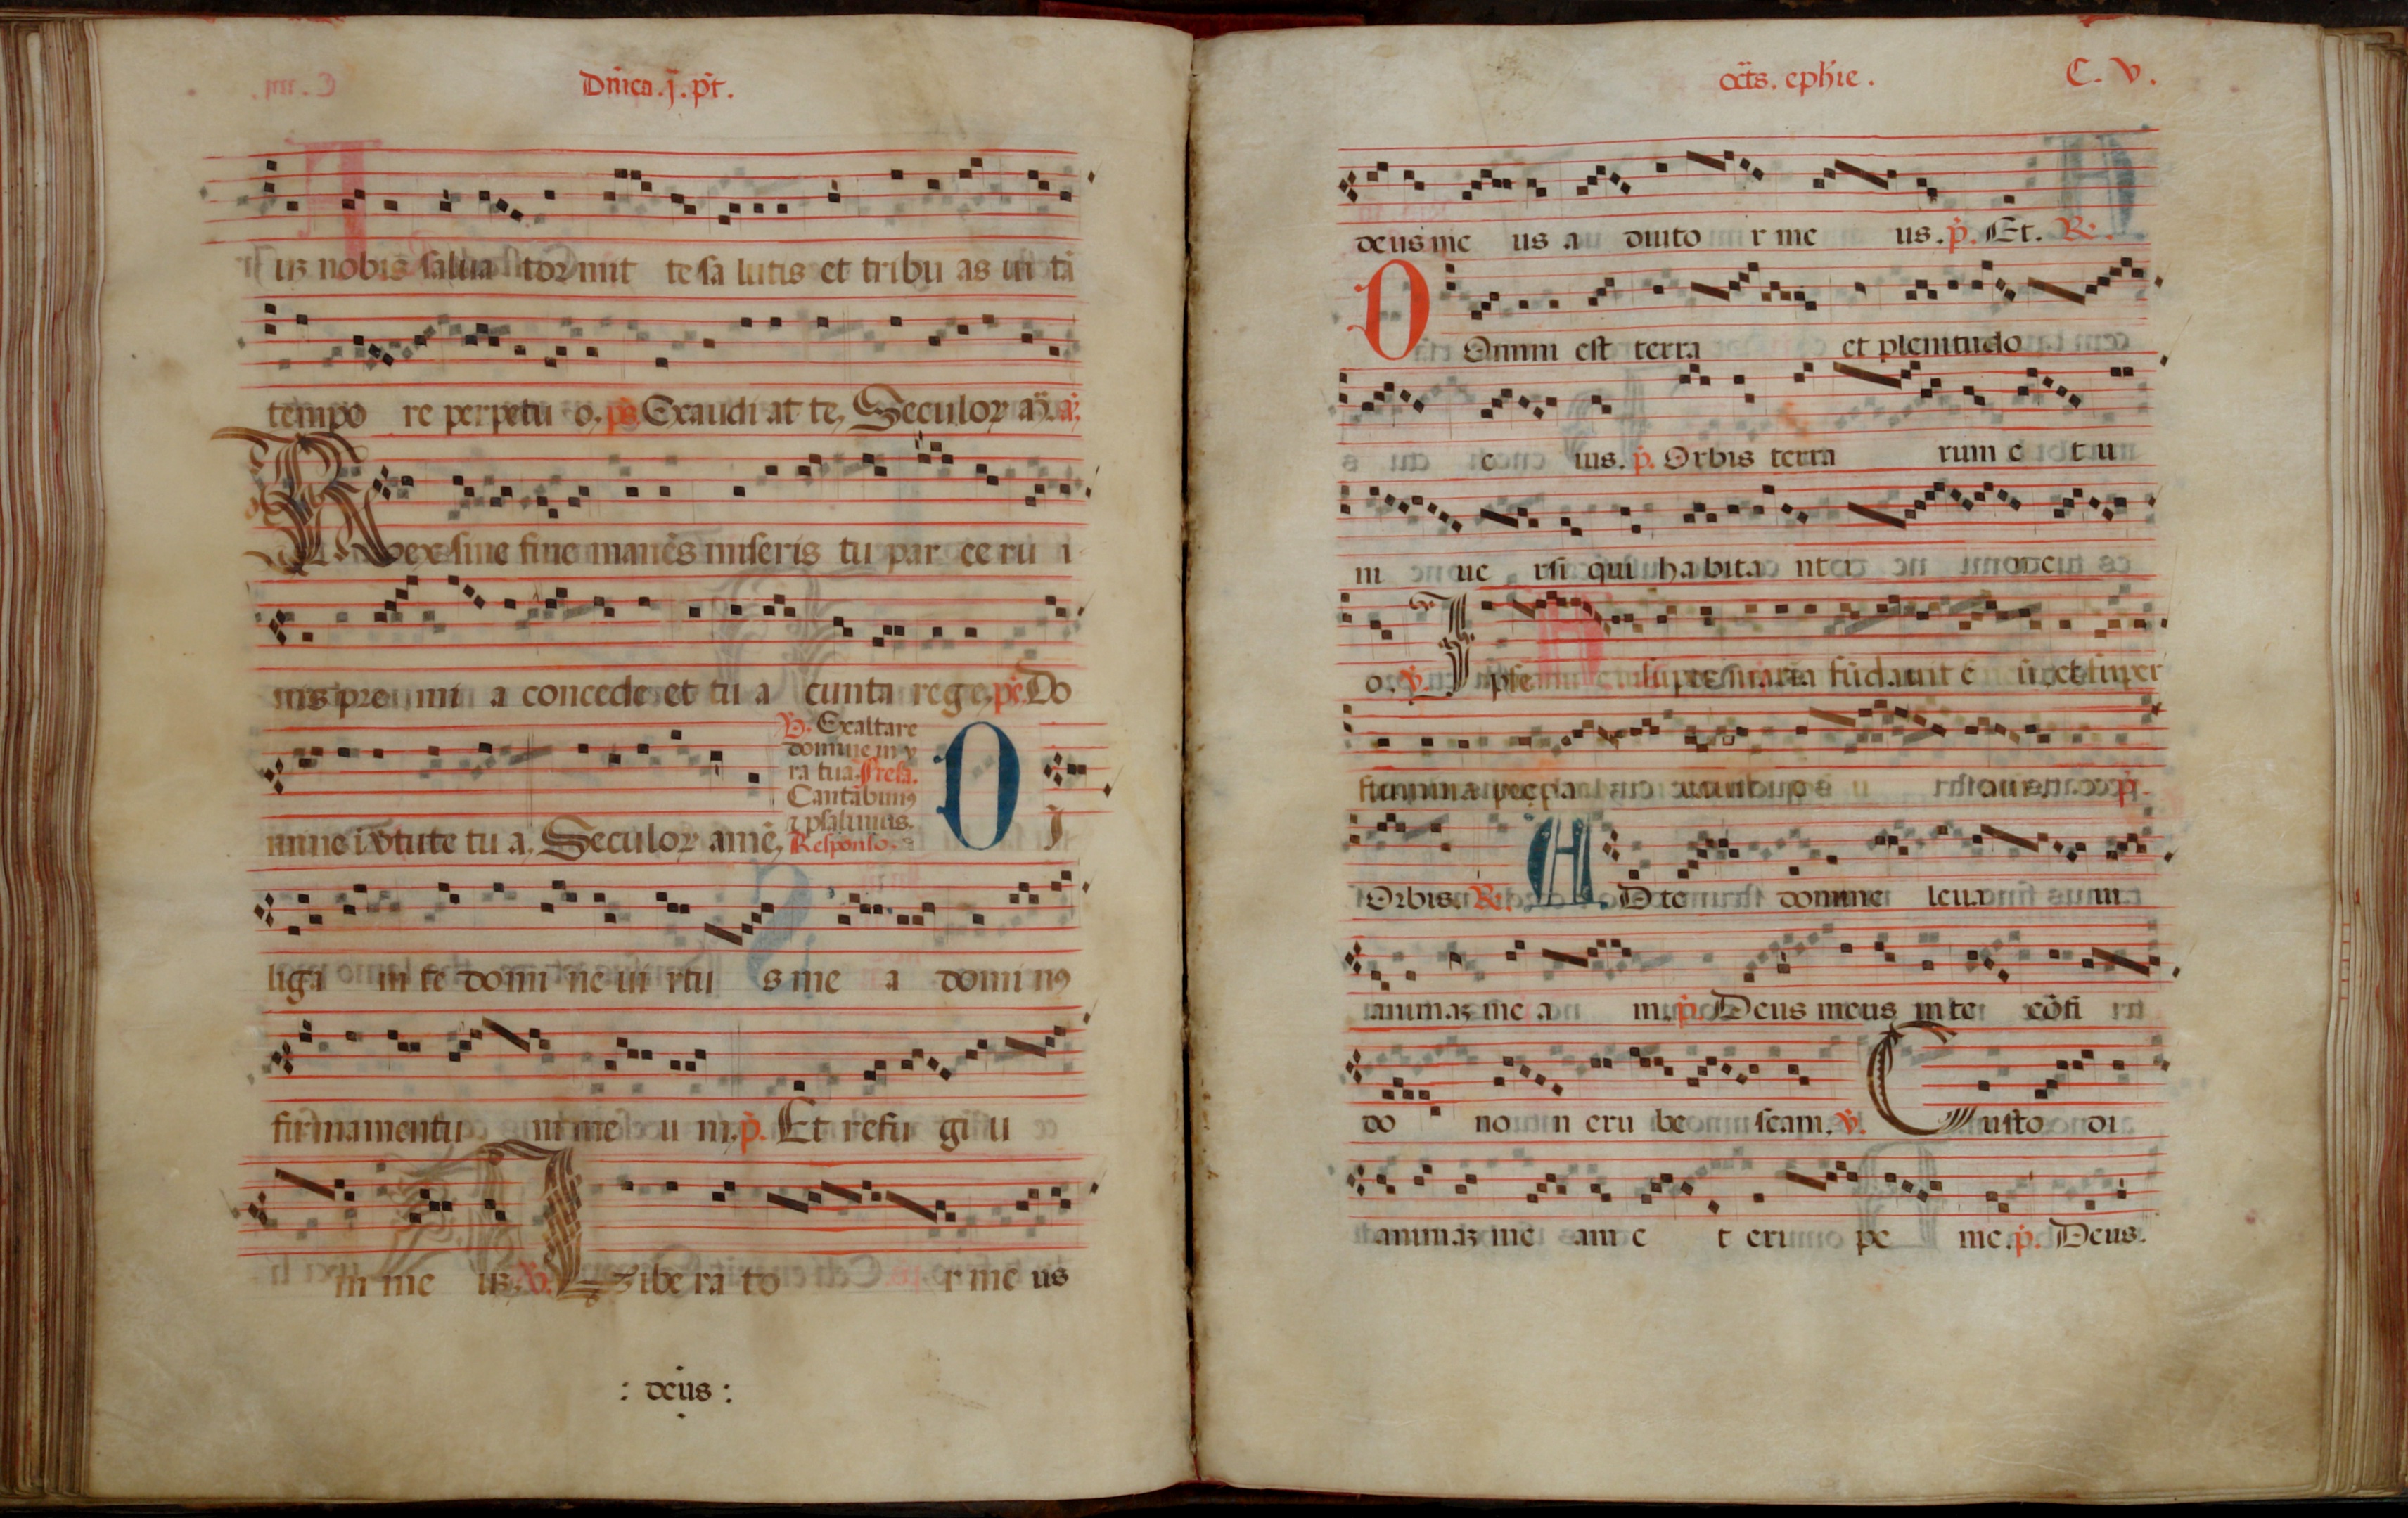 Dn̄ica.j.p̄t.
uʒ nobis salua tor mit te sa lutis et tribu as ui tā
tempo re perpetu o, p̄s. Exaudi at te, Seculoꝝ am̄. a͞.
Rex sine fine manēs miseris tu par ce ru i
nis pre mi a concede et tu a cunta rege, ps̄. Do
mine ī v̄tute tu a, Seculoꝝ amē,
℣. Exaltare
domine in v̄
ra tua. Presa.
Cantabimꝰ
⁊ psalimus.
Responso.
D j
liga m te domi ne ui rtu s me a domi nꝰ
firmamentu m me u m. p̄. Et refu gi u
m me uʒ. ℣. Libe ra to r me us
: deus :
oct̄s. ephie.
C. V.
deus me us a diuto r me us. p̄. Et. ℟.
Domini est terra et plenitudo
e ius. p̄. Orbis terra rum e t u
ni ue rsi qui ha bita nt i n e
o. ℣. Ipse super maria fūdauit e ū, et super
flumina p̄. 
Orbis. ℟. AD te domine leua ui
animaʒ me a m. p̄. Deus meus in te cōfi
do no n eru be scam. ℣. Custo di
animaʒ me am e t eri pe me. p̄. Deus.